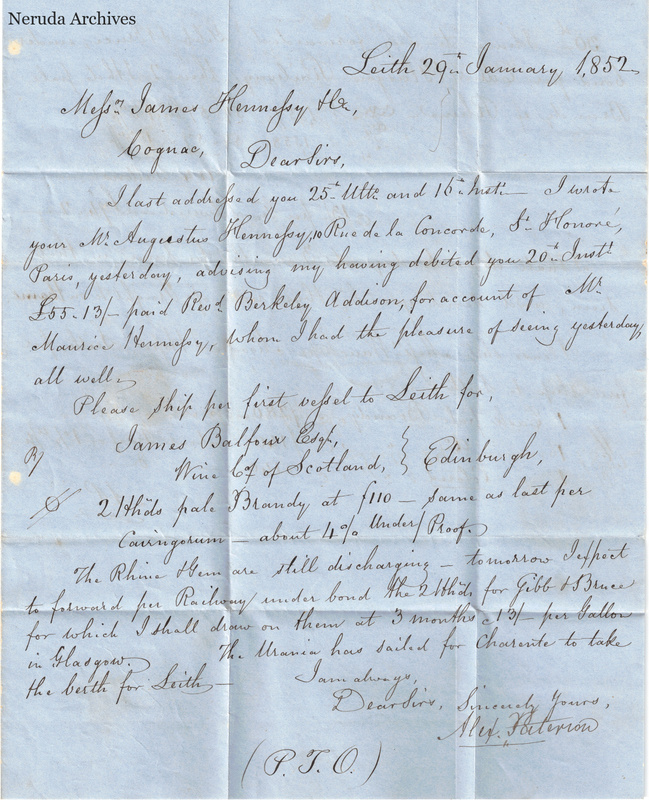 Neruda Archives
Leith 29th January 1,852
Messrs James Hennessy & Co,
Cognac, Dear Sirs,
I last addressed you 25th Ulto and 16th Inst — I wrote
your Mr Augustus Hennessy, 10 Rue de la Concorde, St Honoré,
Paris, yesterday, advising my having debited you 20th Inst
£55-13/- paid Revd Berkeley Addison, for account of Mr
Maurice Hennessy, whom I had the pleasure of seeing yesterday,
all well.
Please ship per first vessel to Leith for,
James Balfour Esqr,
Wine Co of Scotland, } Edinburgh,
2 Hhds pale Brandy at £110 — same as last per
Cairngorum — about 4% Under/Proof.
The Rhine & Gem are still discharging — tomorrow I expect
to forward per Railway under bond the 2 Hhds for Gibb & Bruce
for which I shall draw on them at 3 months @ 13/- per Gallon
in Glasgow. The Urania has sailed for Charente to take
the berth for Leith —
I am always,
Dear Sirs, Sincerely Yours,
Alex. Paterson
(P.T.O.)